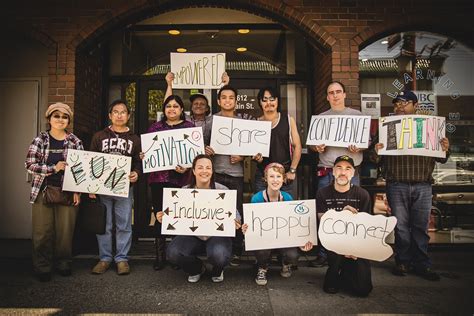 EMPOWERED
612
ain St.
LEARNING
ECKO
FUN
MOTIVATION
Share
CONFIDENCE
THINK
Inclusive
happy
connect